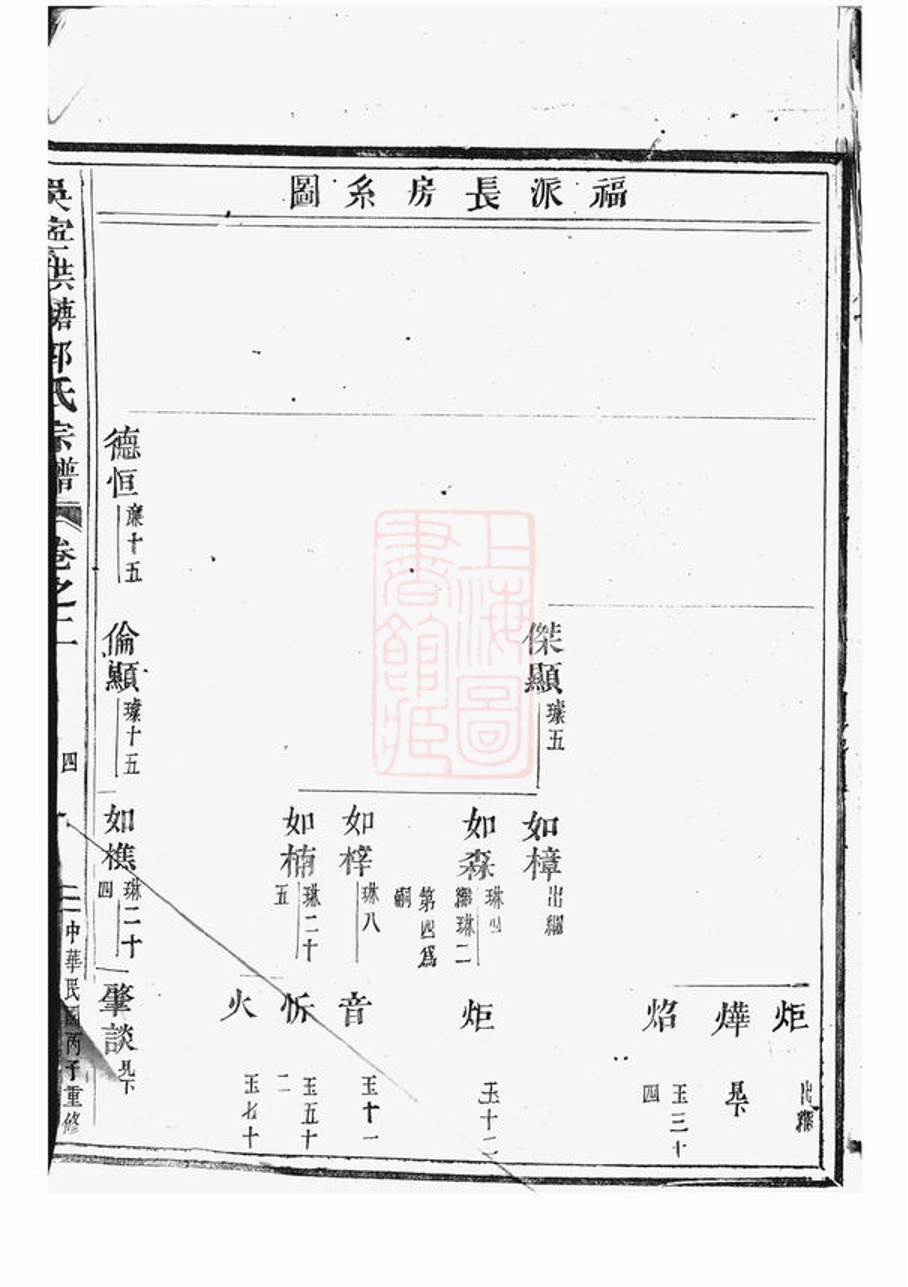 福派長房系圖
炬
出繼
燁
見下
焰
玉三十
四
傑顯
璨五
如樟
出繼
如森
琳四
繼琳二
第四爲
嗣
炬
玉十二
如梓
琳八
音
玉十一
如楠
琳二十
五
忻
玉五十
二
火
玉七十
德恒
廉十五
倫顯
璨十五
如樵
琳二十
四
肇談
見下
吳寧洪塘郭氏宗譜
卷之二
四
中華民國丙子重修
上海圖
書館藏